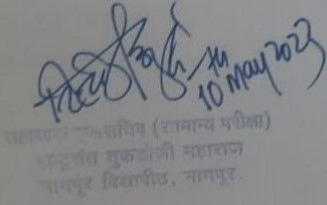 10th May 2023
सहायक कुलसचिव (सामान्य परीक्षा)
राष्ट्रसंत तुकडोजी महाराज
नागपूर विद्यापीठ, नागपूर.